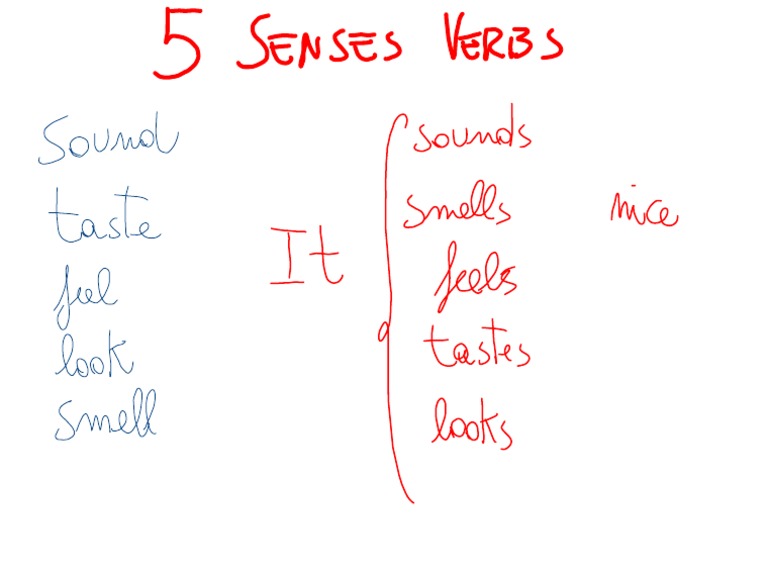 5 SENSES VERBS
sound
taste
feel
look
smell
It
sounds
smells nice
feels
tastes
looks